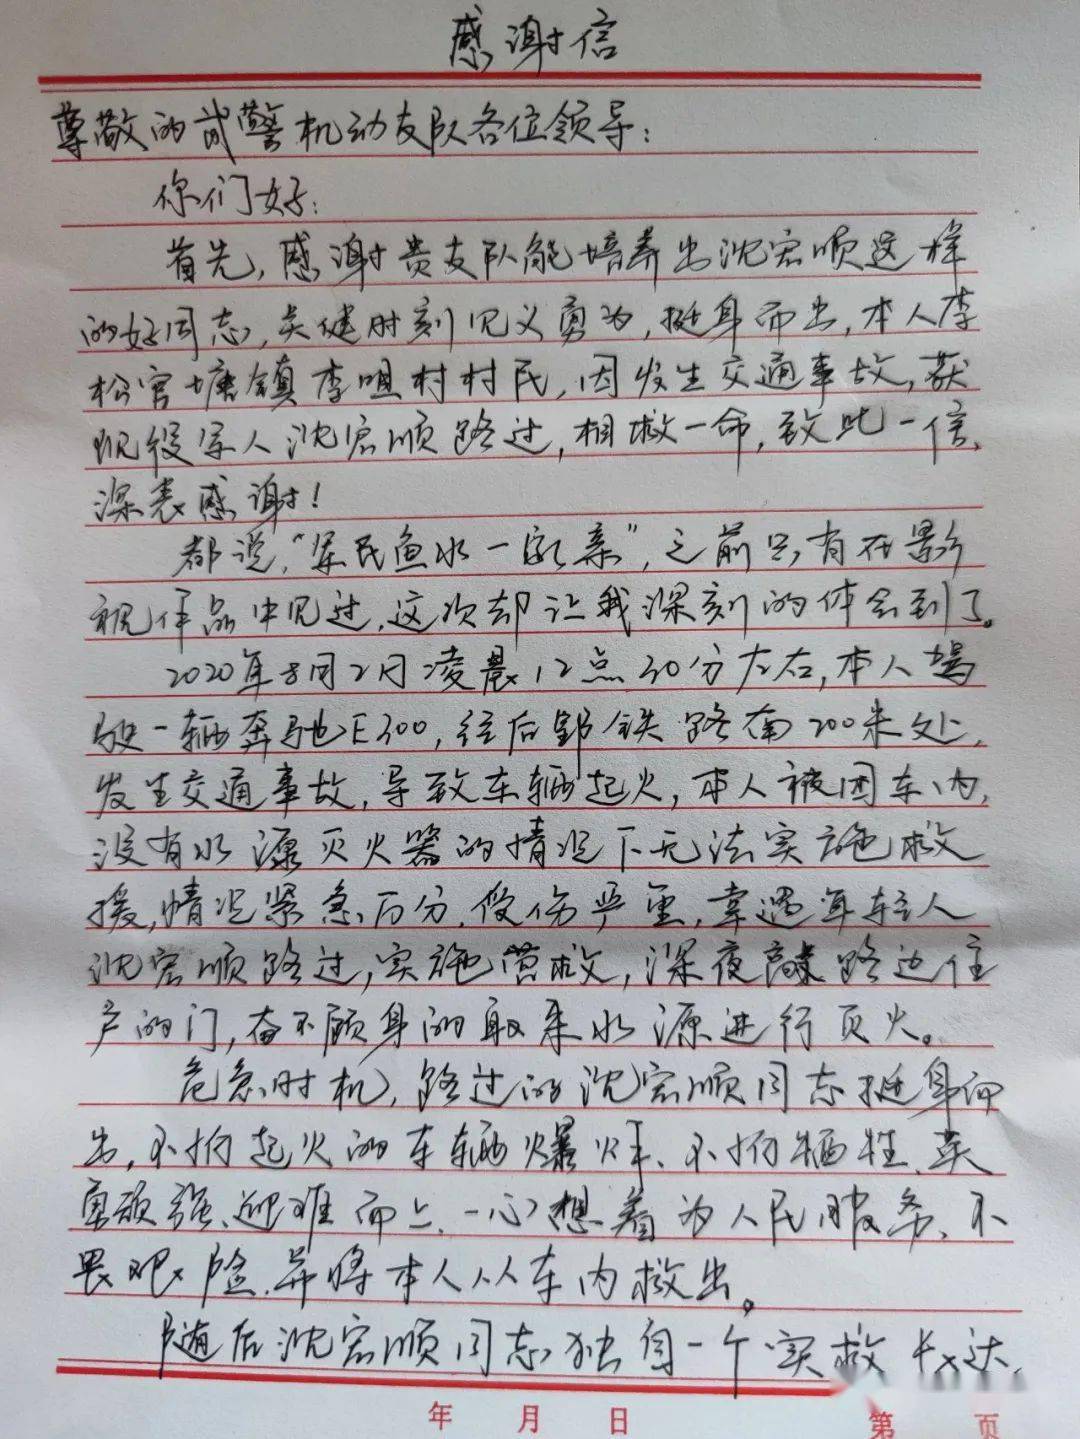 感谢信
尊敬的武警机动支队各位领导：
你们好：
首先，感谢贵支队能培养出沈宏顺这样
的好同志，关健时刻见义勇为，挺身而出，本人李
松官塘镇李咀村村民，因发生交通事故，获
现役军人沈宏顺路过，相救一命，致此一信，
深表感谢！
都说，“军民鱼水一家亲”，之前只有在影
视作品中见过，这次却让我深刻的体会到了。
2020年8月2日凌晨12点30分左右，本人驾
驶一辆奔驰E300，往后邹铁路南200米处，
发生交通事故，导致车辆起火，本人被困车内，
没有水源灭火器的情况下无法实施救
援，情况紧急万分，受伤严重，幸遇年轻人
沈宏顺路过，实施营救，深夜敲路边住
户的门，奋不顾身的取来水源进行灭火。
危急时机，路过的沈宏顺同志挺身而
出，不怕起火的车辆爆炸、不怕牺牲、英
勇顽强、迎难而上、一心想着为人民服务、不
畏艰险，并将本人从车内救出。
随后沈宏顺同志独自一个实救长达，
年 月 日 第 页